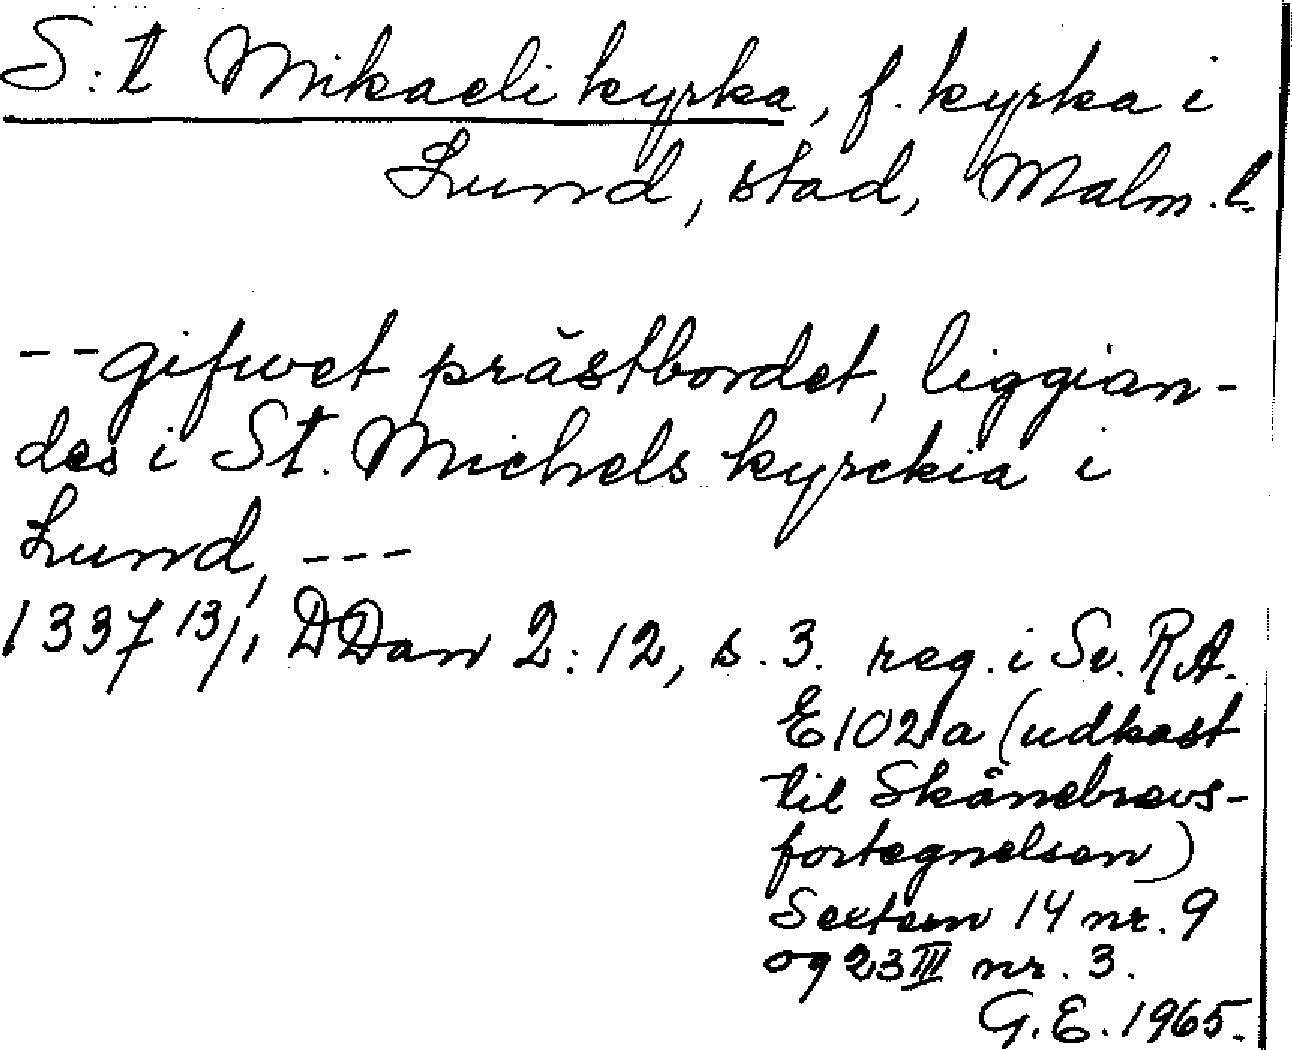 S:t Mikaeli kyrka, f. kyrka i
Lund, stad, Malm. l.
-- gifwet prästbordet, liggian-
des i St. Michels kyrckia i
Lund, ---
1337 13/1, DDan 2:12, s. 3. reg. i Sv. RA.
E102a (udkast
til Skånebrevs-
fortegnelsen)
Sextern 14 nr. 9
og 23 III nr. 3.
G.E. 1965.